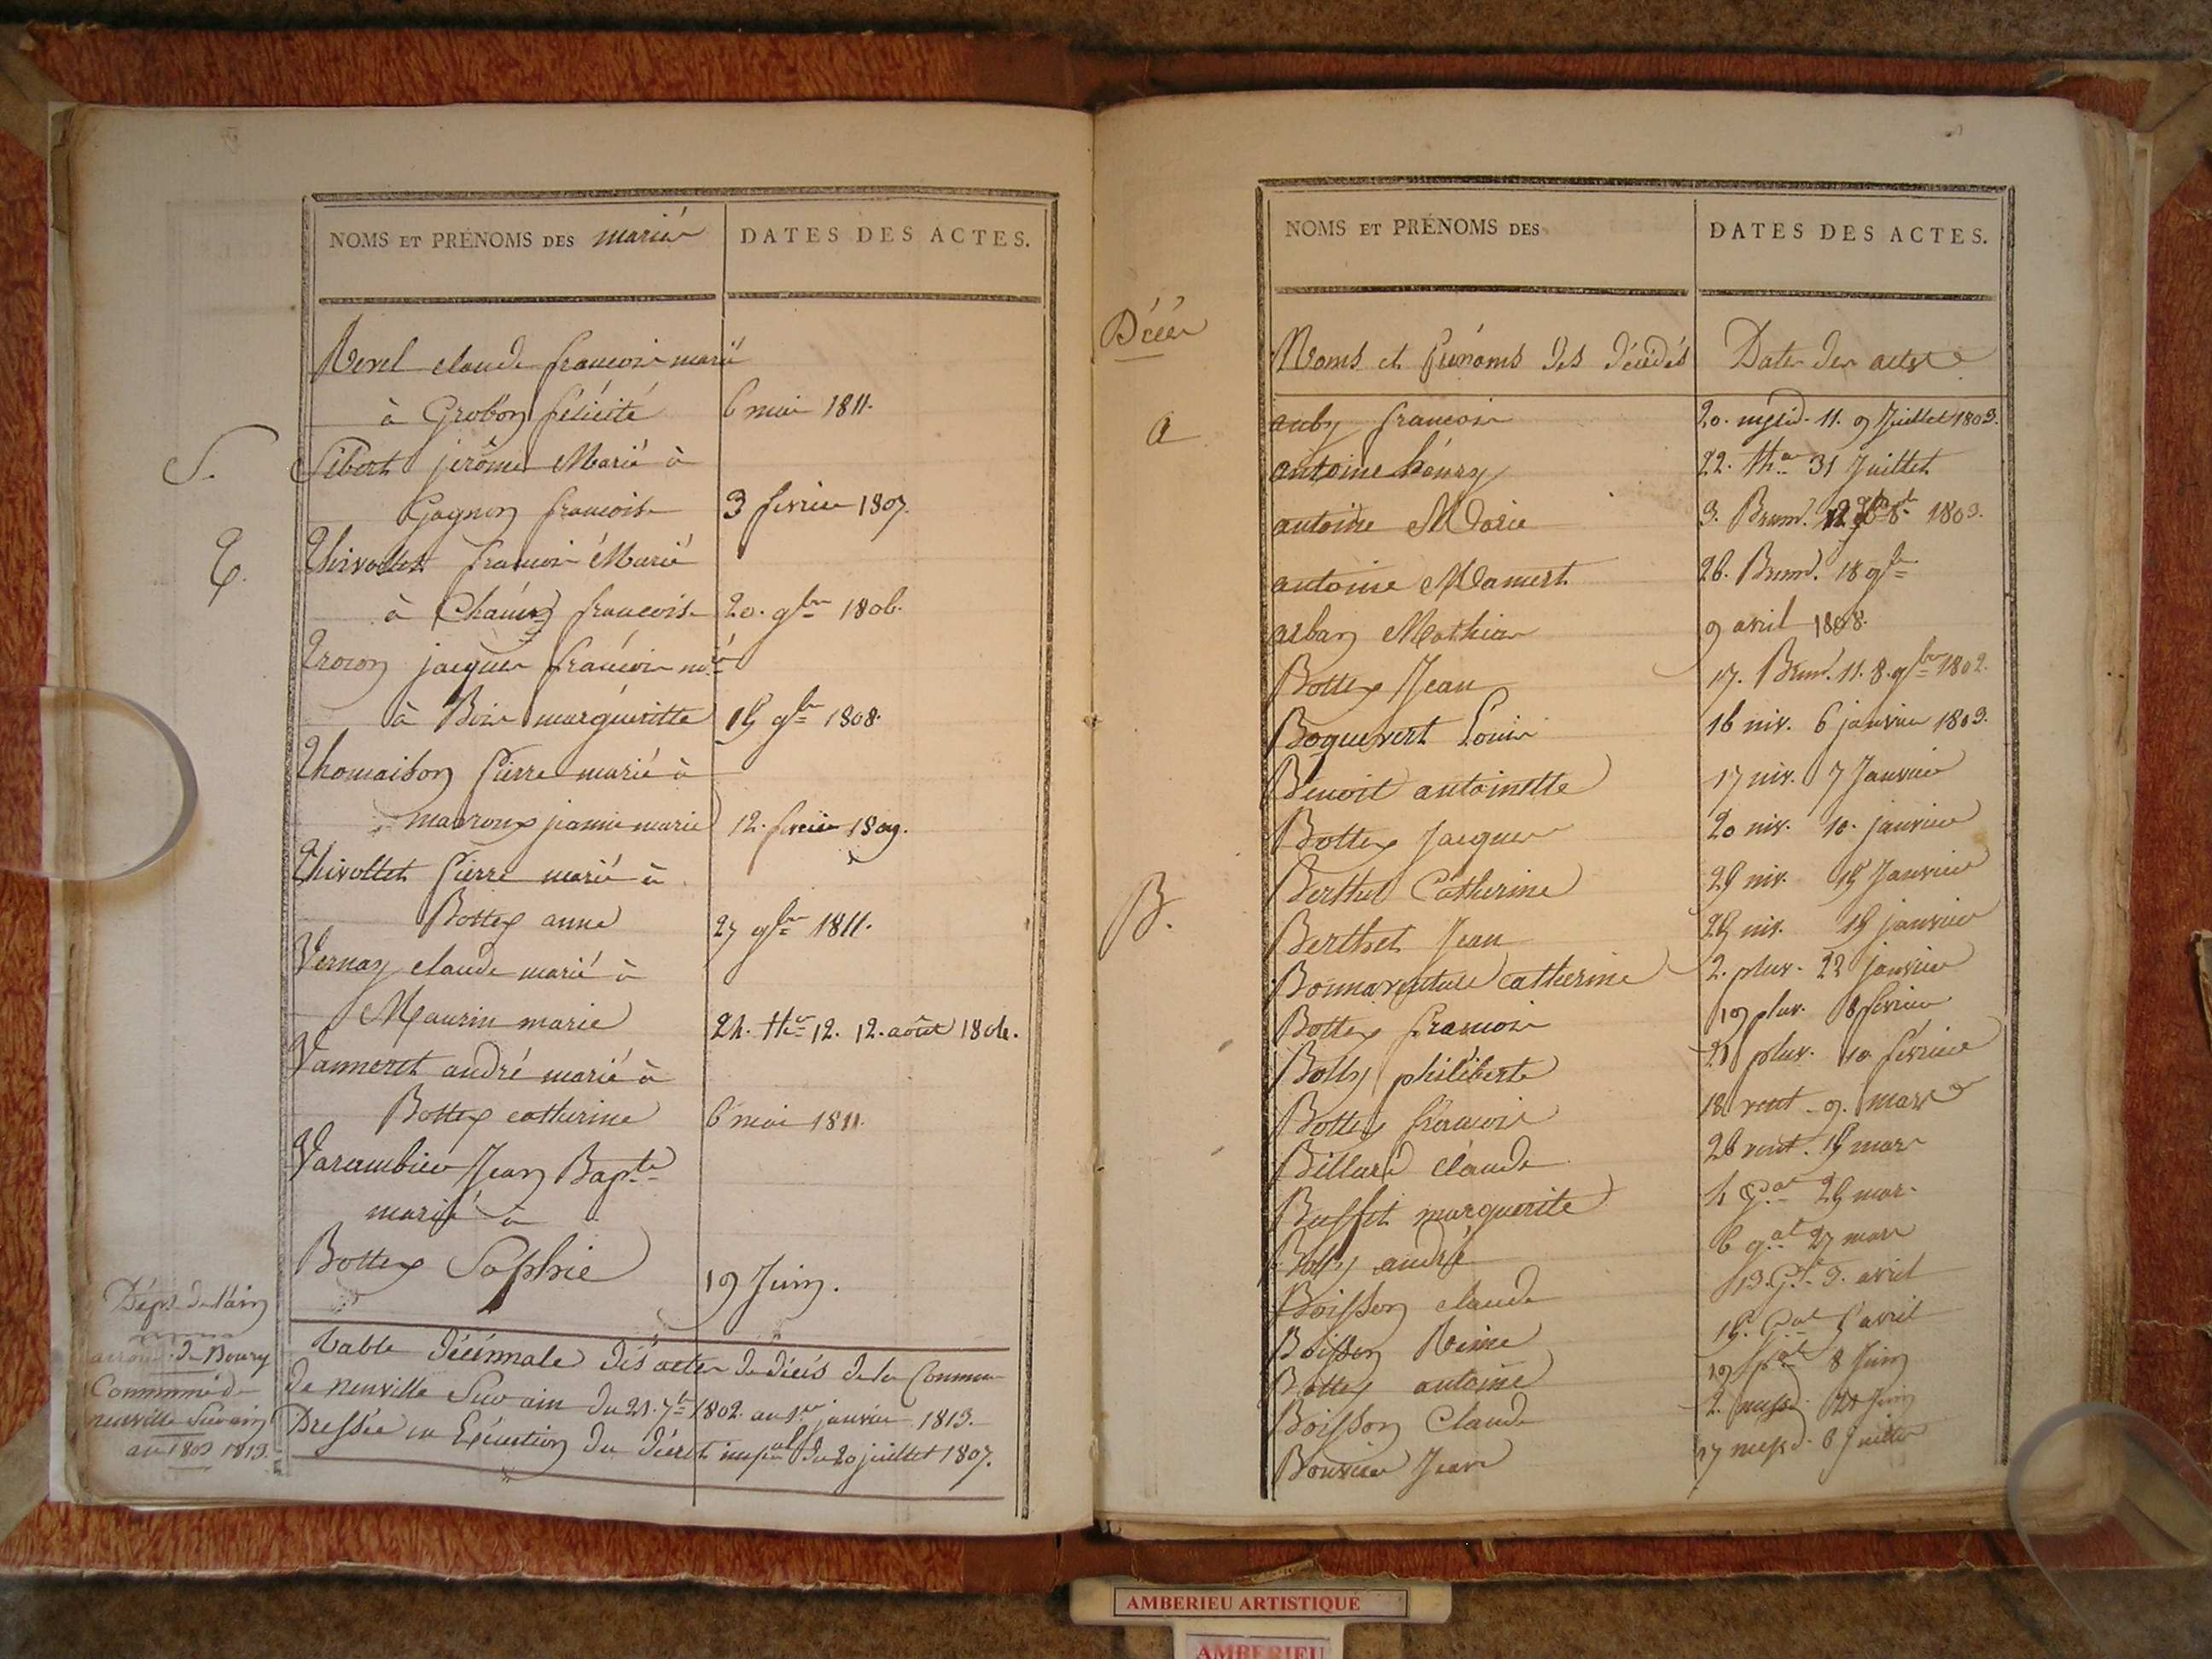 NOMS ET PRÉNOMS DES mariés
DATES DES ACTES.
Revel claude francois marié
à Grobon félicité 6 mai 1811.
S. Sibert jérôme Marié à
Gagnon francoise 3 février 1807.
T. Thivollet francois Marié
à francoise 20. gbre 1806.
Trocon jacques francois m.é
à Bois margueritte 15 gbre 1808.
Thomaison Pierre marié à
jeanne marie 12. février 1809.
Thivollet Pierre marié à
Bottex anne 27 gbre 1811.
Vernay claude marié à
Maurin marie 24. ther 12. 12. août 1804.
Vanneret andré marié à
Bottex catherine 6 mai 1811.
Varambier Jean Bapte
marié à
Bottex Sophie 19 Juin.
Dépt de l'ain
arrondt de Bourg
Commune de
neuville Sur ain
an 1802 1813.
table décénnale dés actes de décés de la Commune
de neuville Sur ain du 21. 7bre 1802. au 1er janvier 1813.
Dressée en Exécution du décret impal du 20 juillet 1807.
NOMS ET PRÉNOMS DES
DATES DES ACTES.
Décès
Noms et Prénoms des décédés Dates des actes
a auby francois 20. messid. 11. 9 Juillet 1803.
antoine 22. ther 31 Juillet
antoine Marie 3. Brum. 1803.
antoine Mamert 26. Brum. 18 gbre
arban Mathieu 9 avril 1808.
Bottex Jean 17. Brum. 11. 8. gbre 1802.
Boquevert Louis 16 niv. 6 janvier 1803.
Benoit antoinette 17 niv. 7 Janvier
Bottex Jacques 20 niv. 10. janvier
B. Berthet Catherine 25 niv. 15 Janvier
Berthet Jean 25 niv. 15 janvier
Bonnaventure catherine 2. pluv. 22 janvier
Bottex francois 19 pluv. 8 février
Bolly philiberte 21 pluv. 10 février
Bottex francois 18 vent. 9. mars
Billard claude 26 vent. 17 mars
Buffet marguerite 4 G.al 25 mars
Bolly andré 6 g.al 27 mars
Boisson claude 13. G.al 3. avril
Boisson Reine 15. G.al 5 avril
Bottex antoine 19 8 Juin
Boisson Claude 2. messd. 21 Juin
Bouvier Jean 17 messd. 6 Juillet
AMBERIEU ARTISTIQUE
AMBERIEU